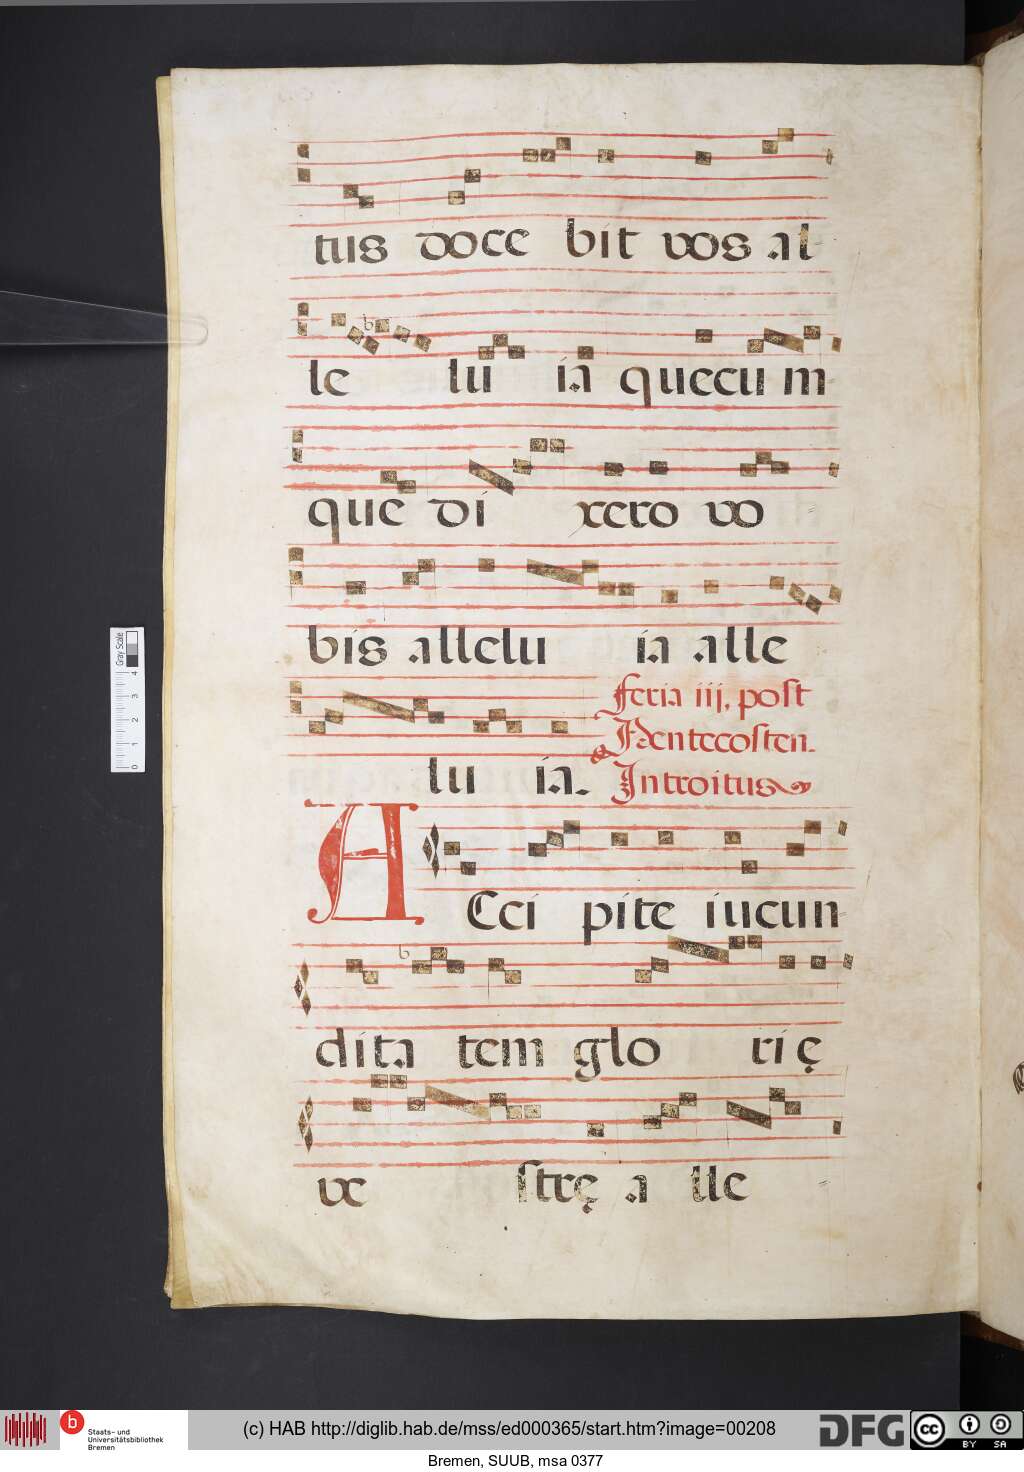 tus doce bit vos al
le lu ia quecum
que di xero vo
bis allelu ia alle
lu ia.
feria iii. post
Pentecosten.
Introitus
ACci pite iucun
dita tem glo rię
ve strę a lle
Gray Scale
0 1 2 3 4
b Staats- und
Universitätsbibliothek
Bremen
(c) HAB http://diglib.hab.de/mss/ed000365/start.htm?image=00208
DFG
cc BY SA
Bremen, SUUB, msa 0377